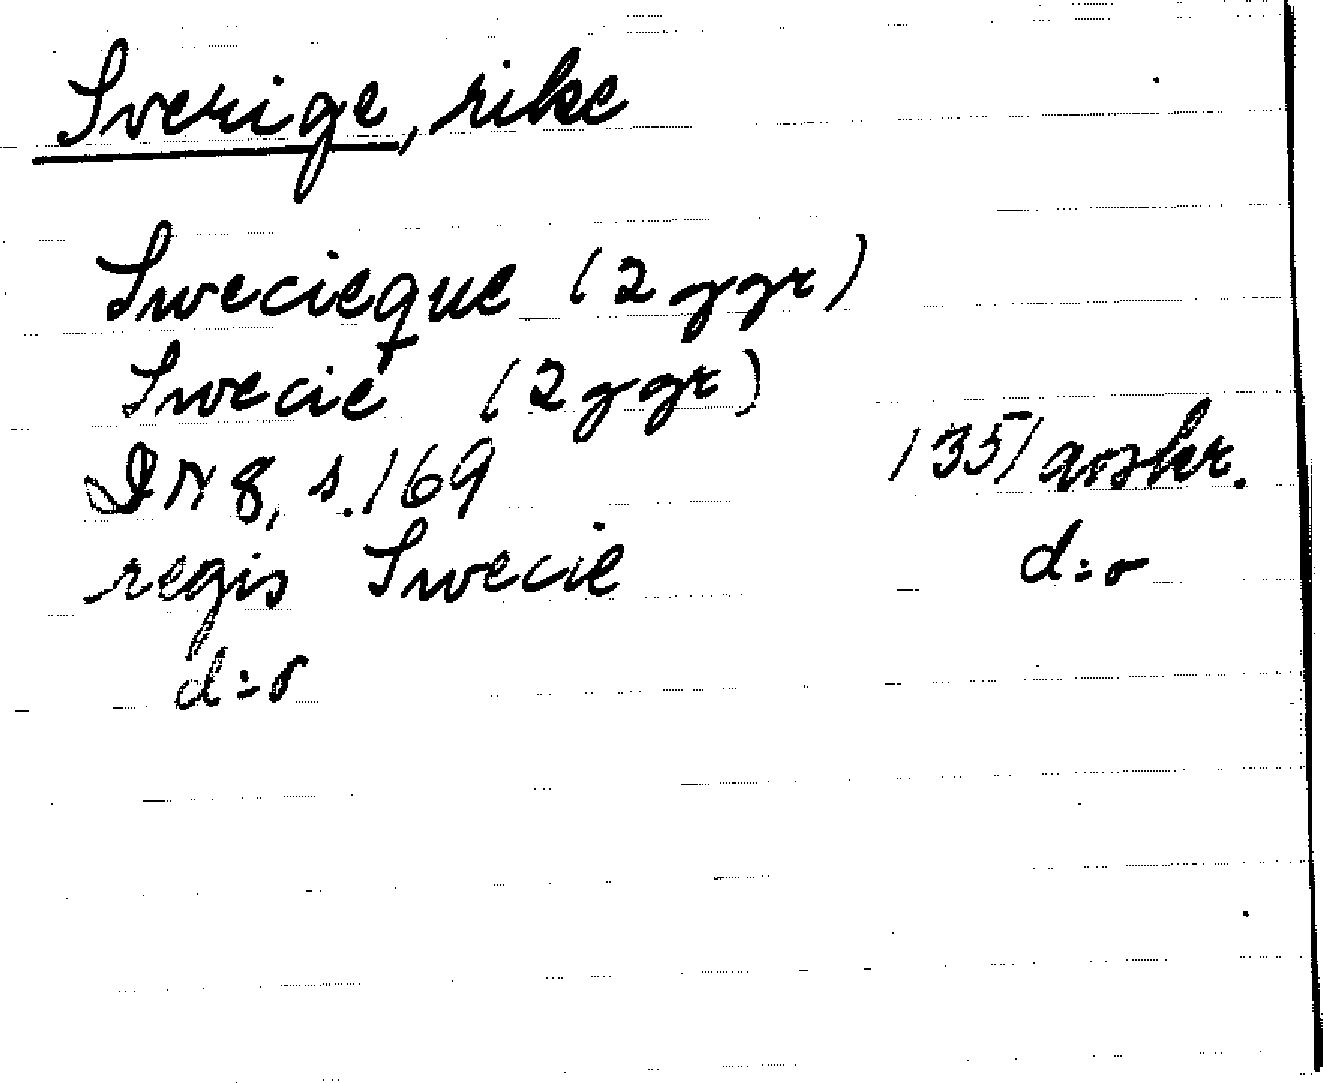 Sverige, rike
Swecieque (2 ggr)
Swecie (2 ggr)
DN 8, s. 169 1351 avskr.
regis Swecie d:o
d:o